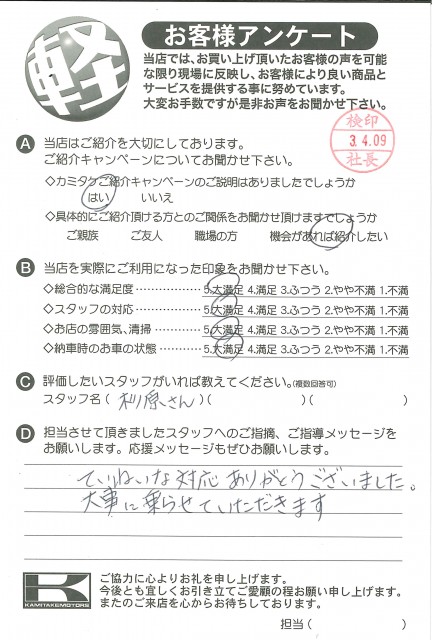 軽
お客様アンケート
当店では、お買い上げ頂いたお客様の声を可能
な限り現場に反映し、お客様により良い商品と
サービスを提供する事に努めています。
大変お手数ですが是非お声をお聞かせ下さい。
検印
3.4.09
社長
A 当店はご紹介を大切にしております。
ご紹介キャンペーンについてお聞かせ下さい。
◇カミタケご紹介キャンペーンのご説明はありましたでしょうか
はい いいえ
◇具体的にご紹介頂ける方とのご関係をお聞かせ頂けますでしょうか
ご親族 ご友人 職場の方 機会があれば紹介したい
B 当店を実際にご利用になった印象をお聞かせ下さい。
◇総合的な満足度 ・・・・・・・・・・・・ 5.大満足 4.満足 3.ふつう 2.やや不満 1.不満
◇スタッフの対応 ・・・・・・・・・・・・ 5.大満足 4.満足 3.ふつう 2.やや不満 1.不満
◇お店の雰囲気、清掃 ・・・・・・・・ 5.大満足 4.満足 3.ふつう 2.やや不満 1.不満
◇納車時のお車の状態 ・・・・・・・・ 5.大満足 4.満足 3.ふつう 2.やや不満 1.不満
C 評価したいスタッフがいれば教えてください。(複数回答可)
スタッフ名( 原さん )( )( )
D 担当させて頂きましたスタッフへのご指摘、ご指導メッセージを
お願いします。応援メッセージもぜひお願いします。
ていねいな対応 ありがとうございました。
大事に乗らせていただきます
K
KAMITAKEMOTORS
ご協力に心よりお礼を申し上げます。
今後とも宜しくお引き立てご愛顧の程お願い申し上げます。
またのご来店を心からお待ちしております。
担当( )